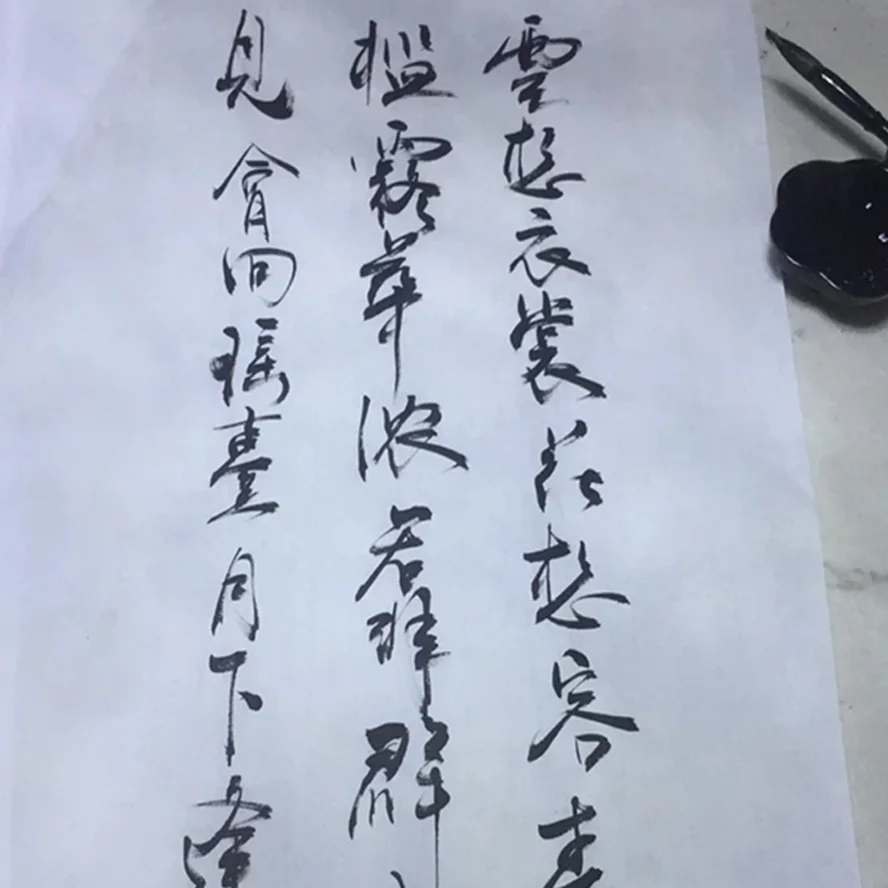 雲想衣裳花想容春
槛露華浓若非群
見會向瑶臺月下逢